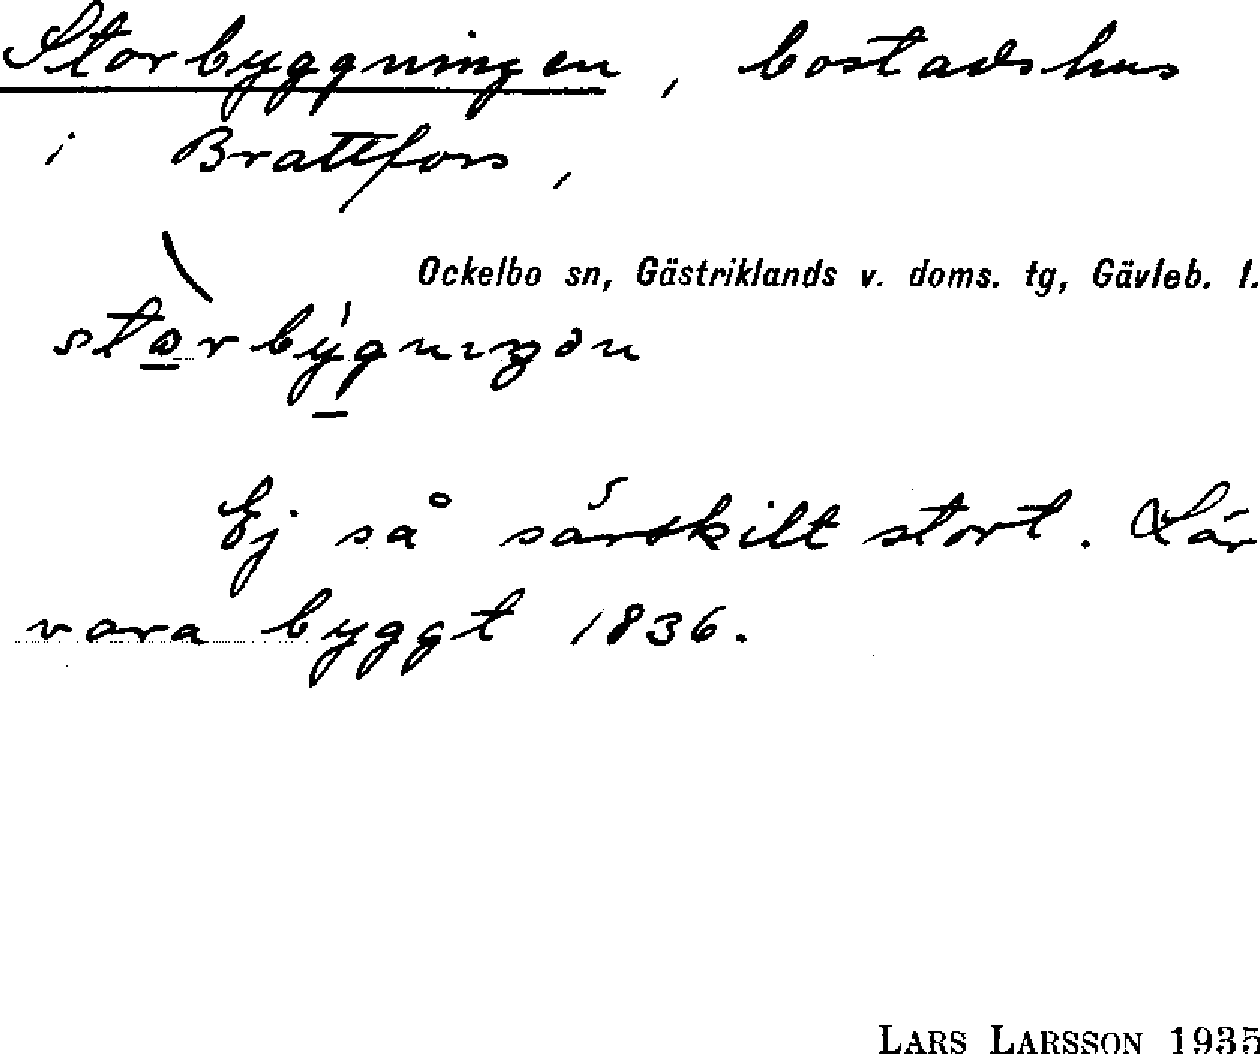 Storbyggningen, bostadshus
i Brattfors,
Ockelbo sn, Gästriklands v. doms. tg, Gävleb. l.
Ej så särskilt stort. Lär
vara byggt 1836.
LARS LARSSON 1935